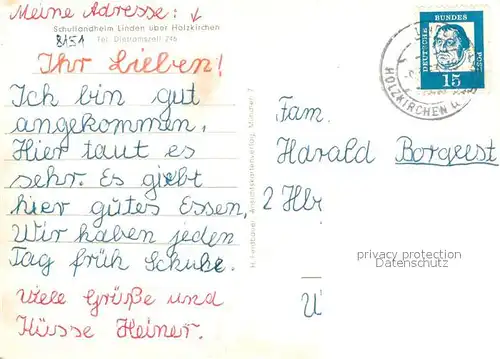 Meine Adresse:
Schullandheim Linden über Holzkirchen
8151
Tel. Dietramszell 246
Ihr Lieben!
Ich bin gut
angekommen.
Hier taut es
sehr. Es giebt
hier gutes Essen.
Wir haben jeden
Tag früh Schuhe.
Viele Grüße und
Küsse Heiner.
München 7
DEUTSCHE
BUNDES
POST
15
HOLZKIRCHEN
Fam.
Harald Borgeest
2 Hbr
privacy protection
Datenschutz
U